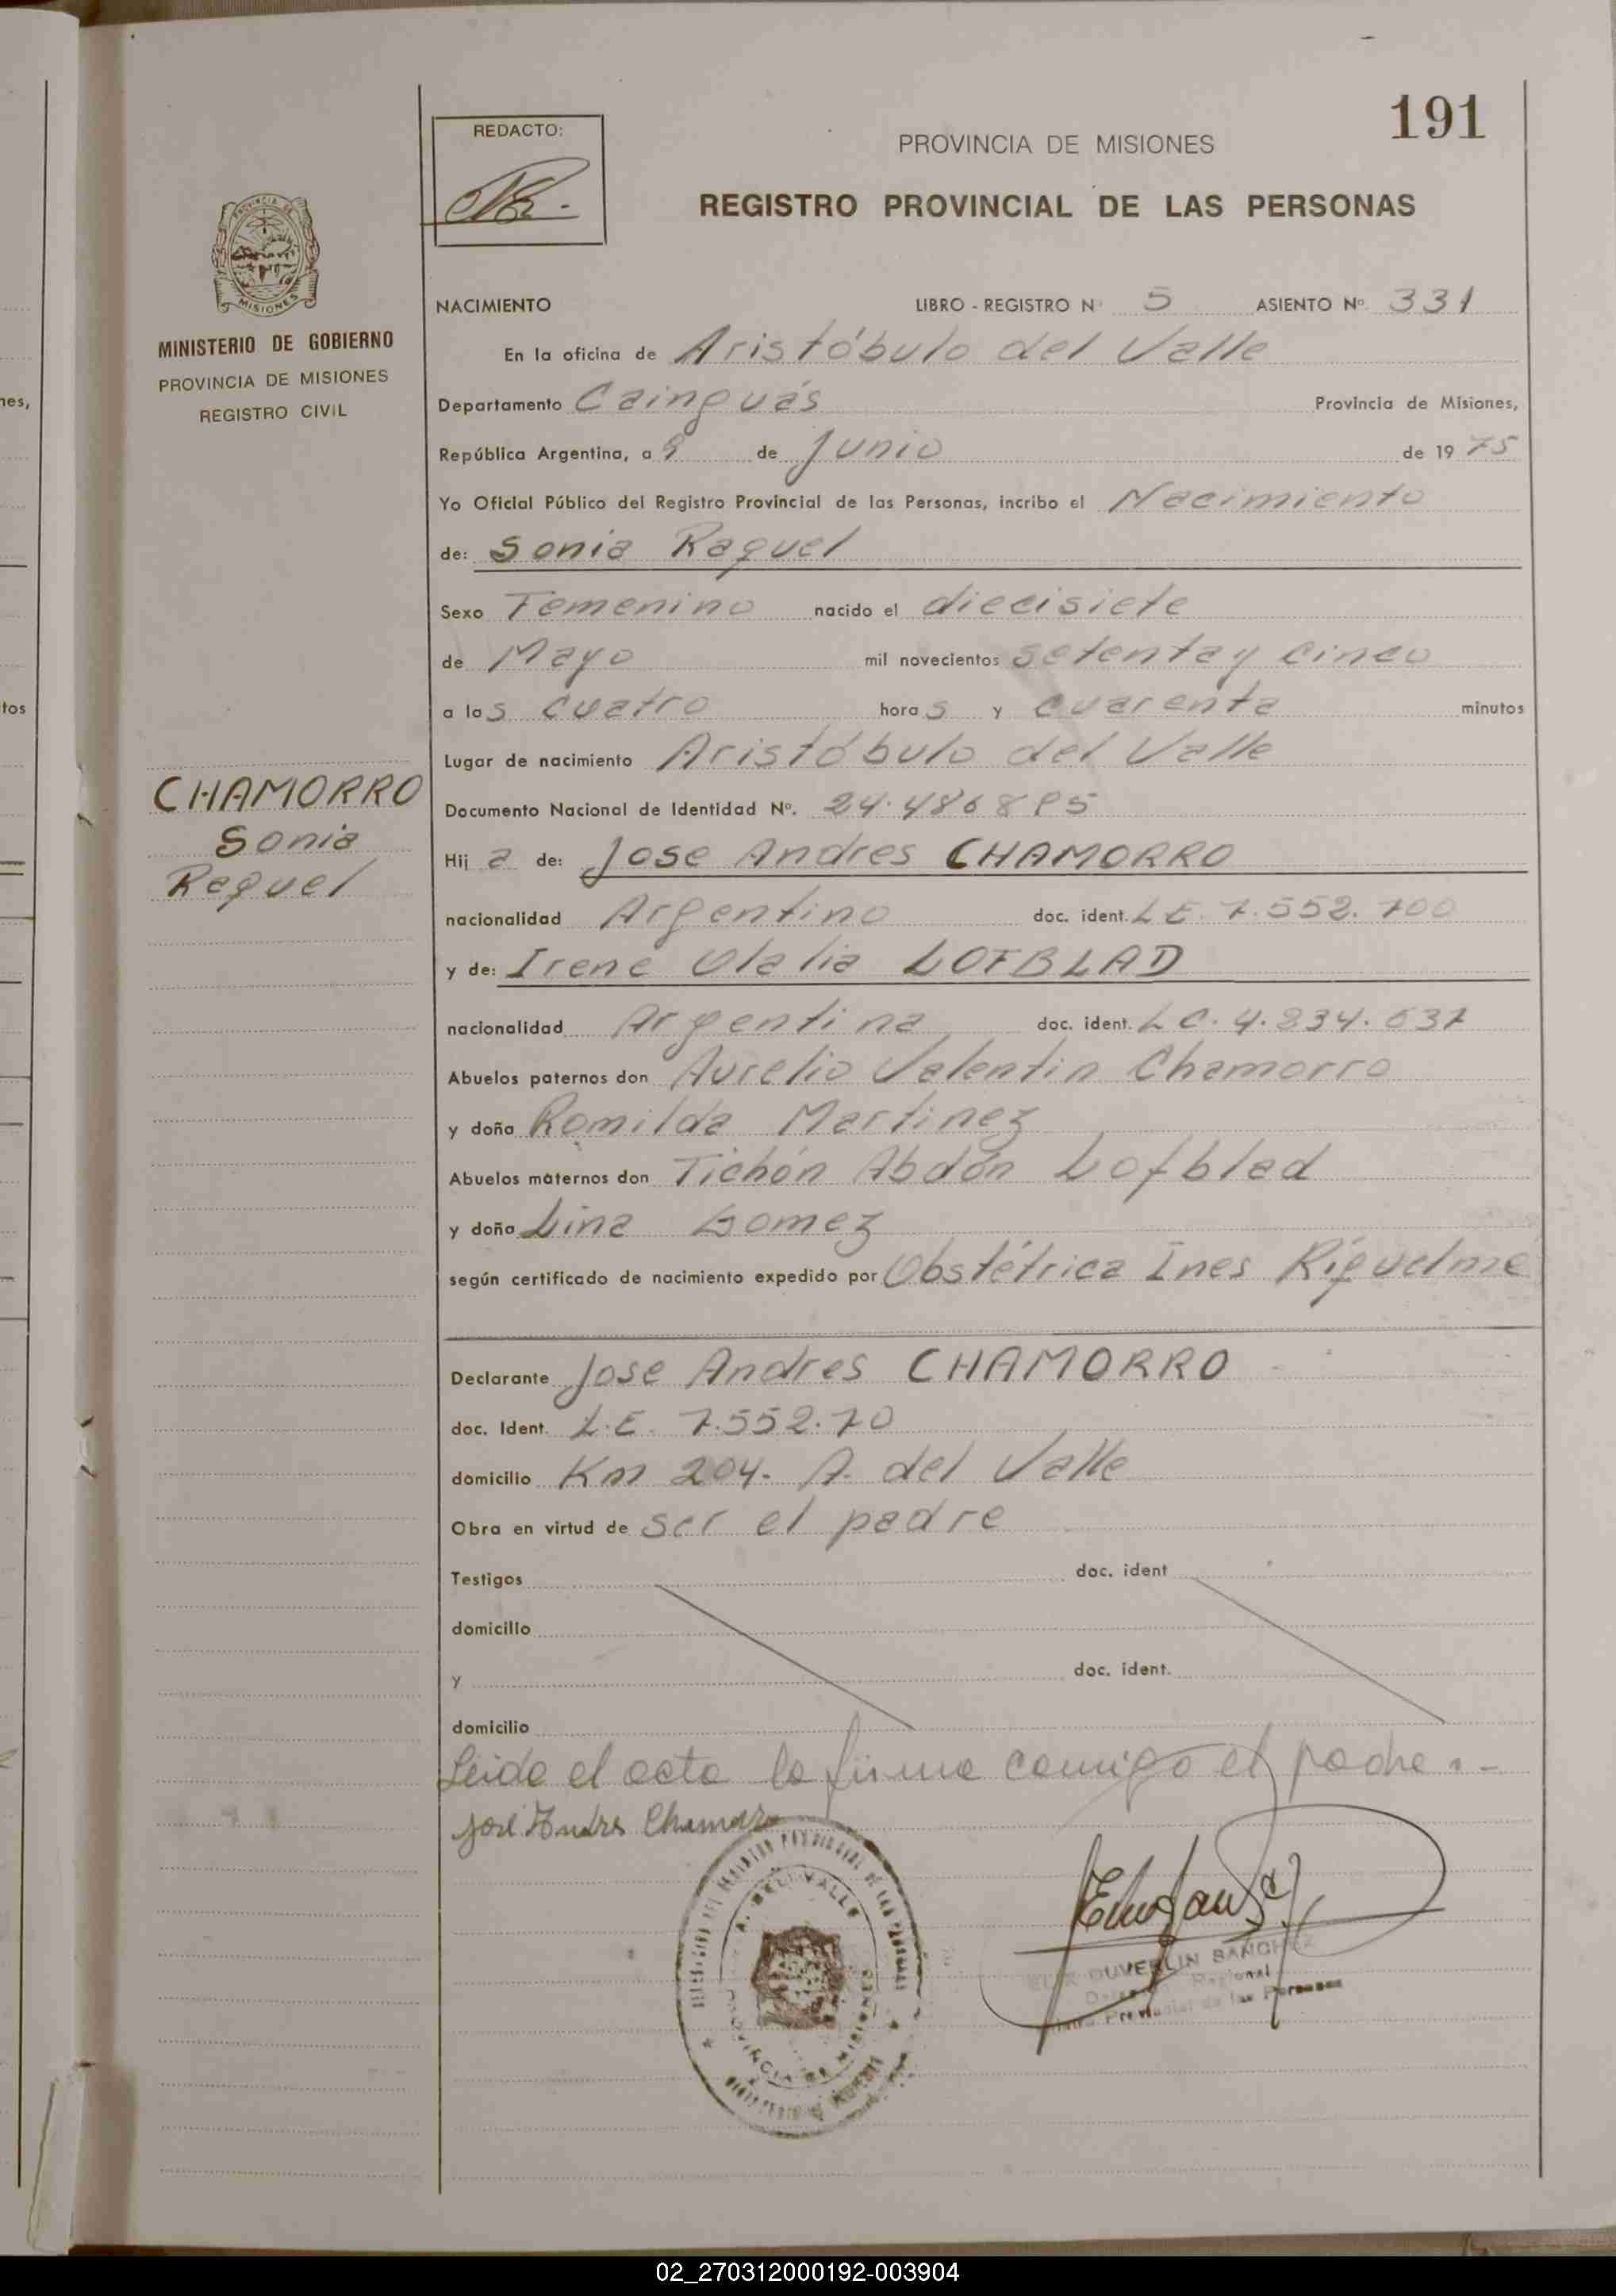 191
REDACTO:
PROVINCIA DE MISIONES
REGISTRO PROVINCIAL DE LAS PERSONAS
MISIONES
MINISTERIO DE GOBIERNO
PROVINCIA DE MISIONES
REGISTRO CIVIL
NACIMIENTO LIBRO - REGISTRO Nº 5 ASIENTO Nº. 331
En la oficina de Aristóbulo del Valle
Departamento Cainguás Provincia de Misiones,
República Argentina, a 9 de Junio de 1975
Yo Oficial Público del Registro Provincial de las Personas, incribo el Nacimiento
de: Sonia Raquel
Sexo Femenino nacido el diecisiete
de Mayo mil novecientos setenta y cinco
a las cuatro horas y cuarenta minutos
Lugar de nacimiento Aristóbulo del Valle
CHAMORRO
Sonia
Raquel
Documento Nacional de Identidad Nº. 24.486895
Hija de: Jose Andres CHAMORRO
nacionalidad Argentino doc. ident. L E. 7.552.700
y de: Irene Olalia LOFBLAD
nacionalidad Argentina doc. ident. L C. 4.834.637
Abuelos paternos don Aurelio Valentin Chamorro
y doña Romilda Martinez
Abuelos maternos don Tichón Abdón Lofblad
y doña Lina Gomez
según certificado de nacimiento expedido por Obstétrica Ines Riquelme
Declarante Jose Andres CHAMORRO
doc. Ident. L.E. 7.552.70
domicilio Km 204- A. del Valle
Obra en virtud de ser el padre
Testigos doc. ident
domicilio
y doc. ident.
domicilio
Leido el acta la firma comigo el padre.-
José Andres Chamorro
A. DEL VALLE
PROVINCIA DE MISIONES
DUVERLIN SANCHEZ
Regional
Provincial de las Personas
02_270312000192-003904